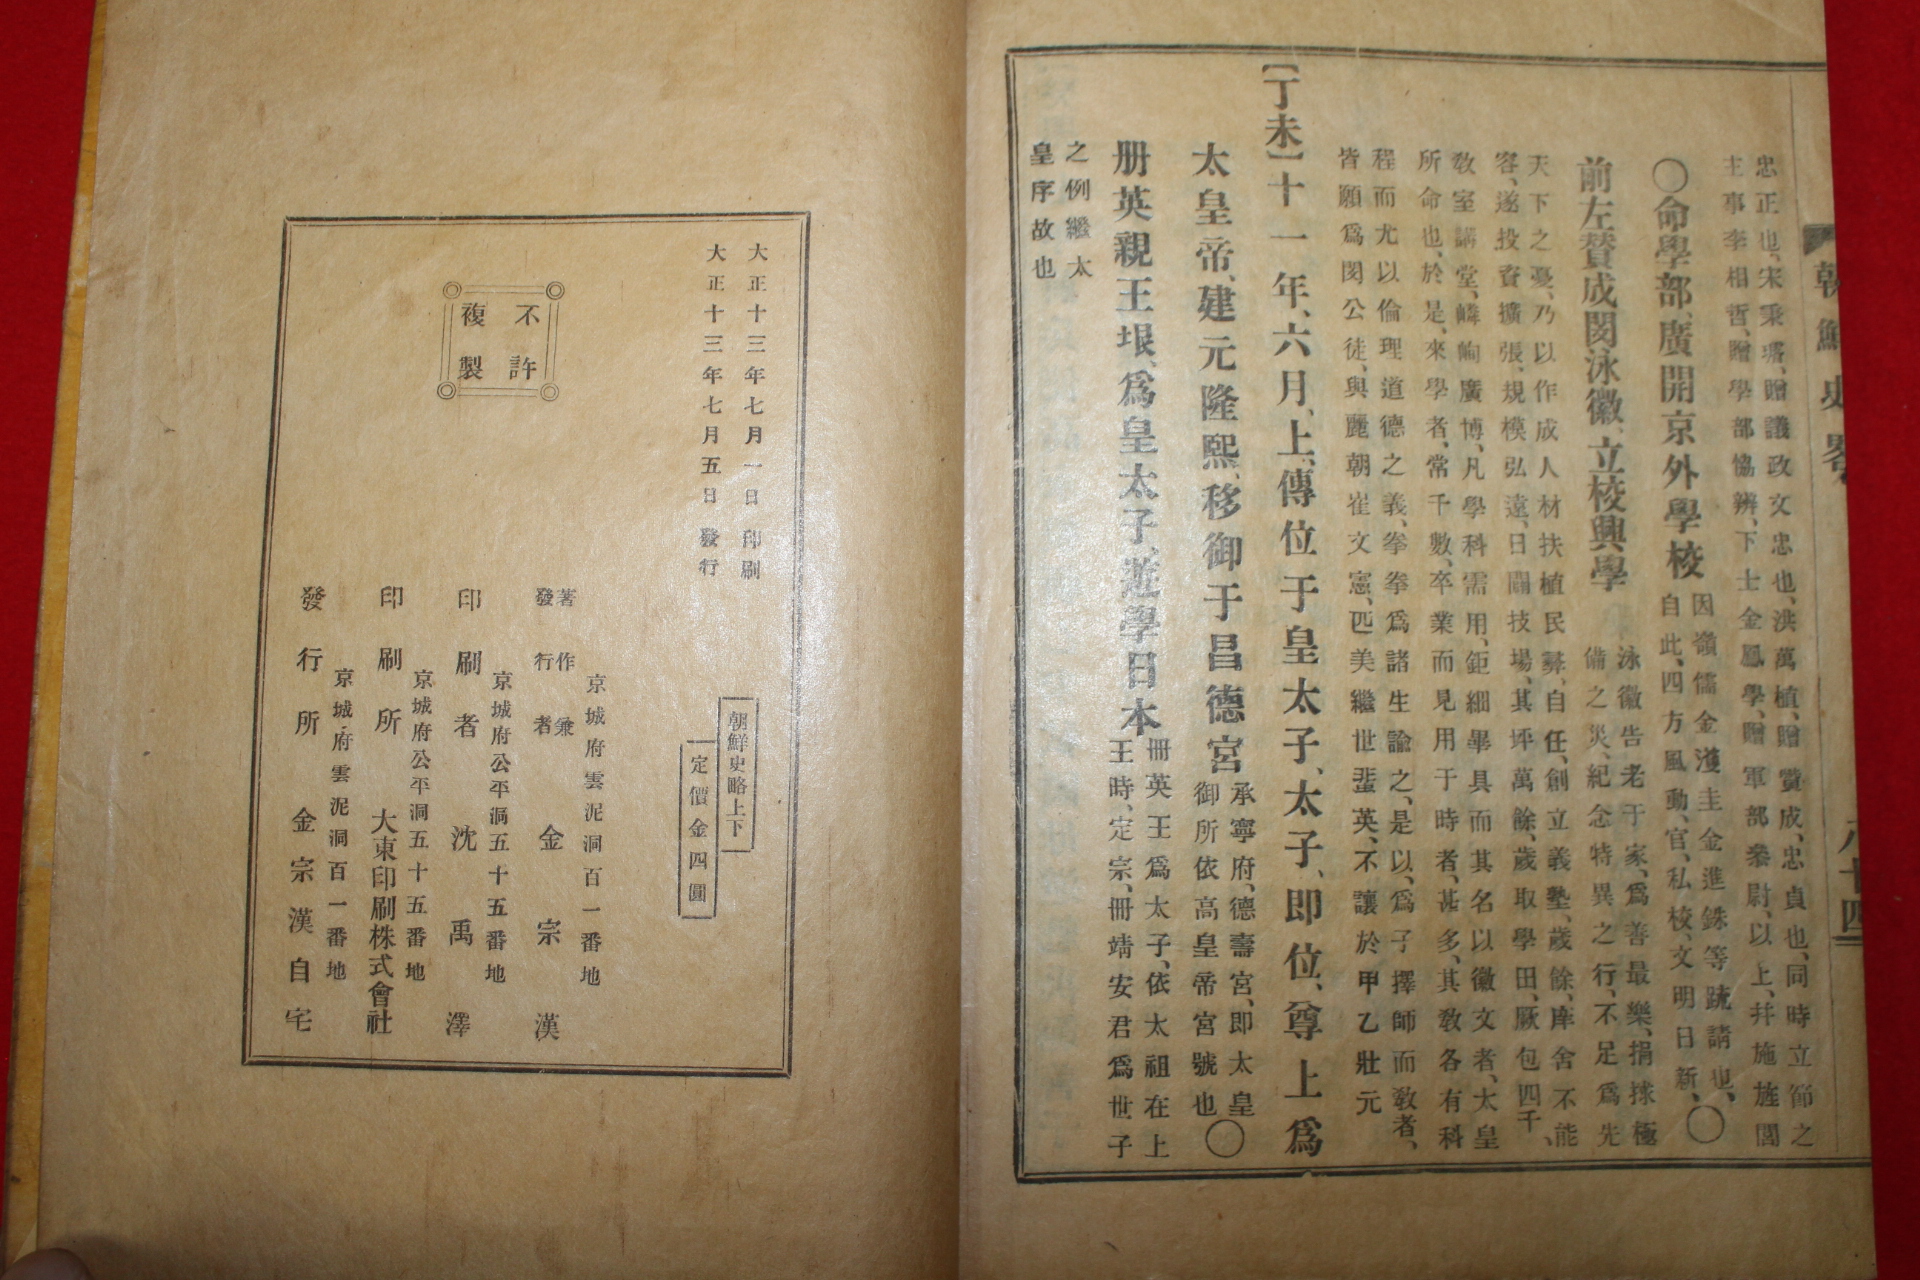 朝鮮史畧 八十四
忠正也、宋秉璿、贈議政文忠也、洪萬植、贈贊成、忠貞也、同時立節之
主事李相哲、贈學部協辨、下士金鳳學、贈軍部叅尉、以上、幷施旌閭
〇命學部、廣開京外學校
因嶺儒金濩圭金進銖等疏請也、
自此、四方風動、官、私校、文明日新、〇
前左賛成閔泳徽、立校興學
泳徽告老于家、爲善最樂、捐捄極
備之災、紀念特異之行、不足爲先
天下之憂、乃以作成人材扶植民彛、自任、創立義塾、歲餘、庠舍不能
容、遂投資擴張、規模弘遠、日闢技場、其坪萬餘、歲取學田、厥包四千、
敎室講堂、嶙峋廣博、凡學科需用、鉅細畢具而其名以徽文者、太皇
所命也、於是、來學者、常千數、卒業而見用于時者、甚多、其敎各有科
程而尤以倫理道德之義、拳拳爲諸生諭之、是以、爲子擇師而敎者、
皆願爲閔公徒、與麗朝崔文憲、匹美繼世蜚英、不讓於甲乙壯元
【丁未】十一年、六月、上、傳位于皇太子、太子、即位、尊上爲
太皇帝、建元隆熙、移御于昌德宮
承寧府、德壽宮、即太皇
御所依高皇帝宮號也〇
册英親王垠、爲皇太子、遊學日本
冊英王爲太子、依太祖在上
王時、定宗、冊靖安君爲世子
之例繼太
皇序故也
大正十三年七月一日印刷
大正十三年七月五日發行
不許
複製
朝鮮史略上下
定價金四圓
京城府雲泥洞百一番地
著作兼
發行者
金宗漢
京城府公平洞五十五番地
印刷者 沈禹澤
京城府公平洞五十五番地
印刷所 大東印刷株式會社
京城府雲泥洞百一番地
發行所 金宗漢自宅